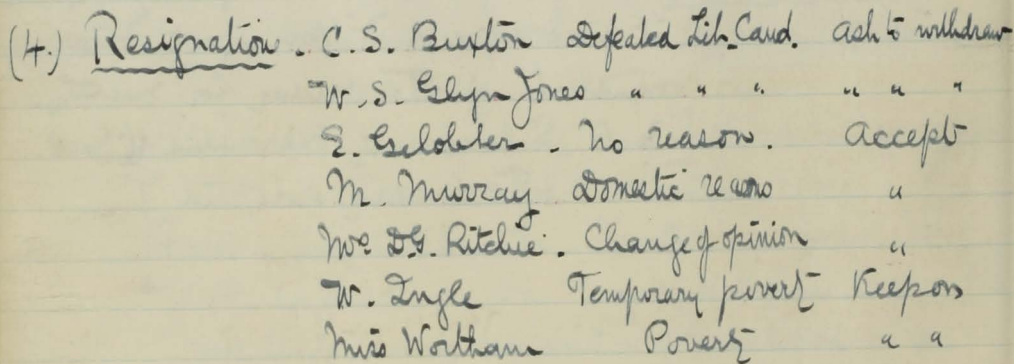 (4.) Resignation. C. S. Buxton Defeated Lib. Cand. Ask to withdraw
W. S. Glyn Jones " " " " " "
E. Gelobter. No reason. Accept
M. Murray Domestic reasons "
Mrs D.G. Ritchie. Change of opinion "
W. Ingle Temporary poverty Keep on
Miss Wortham Poverty " "